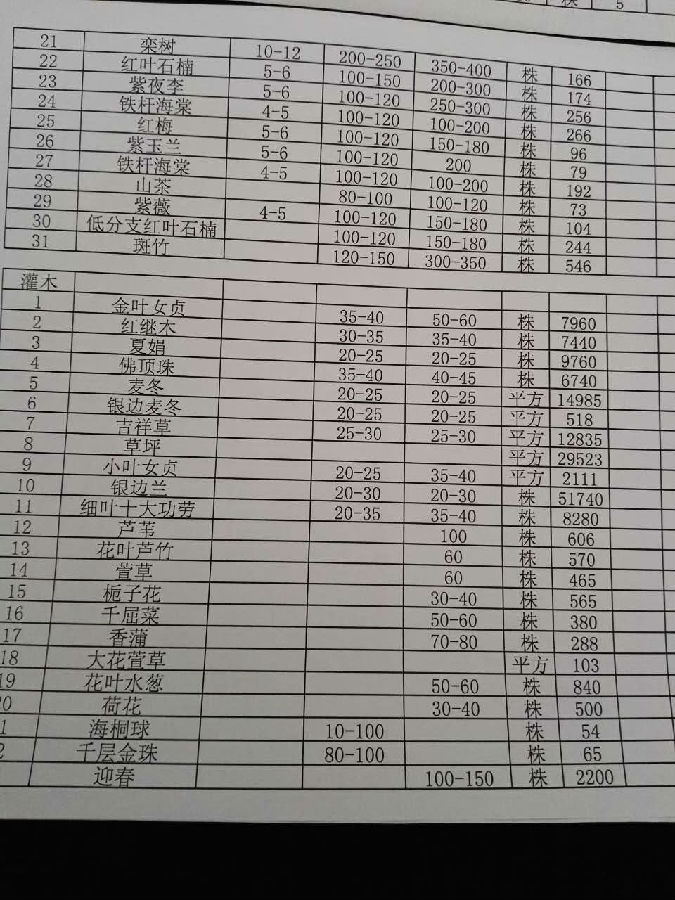 株 5
21 栾树 10-12 200-250 350-400 株 166
22 红叶石楠 5-6 100-150 200-300 株 174
23 紫夜李 5-6 100-120 250-300 株 256
24 铁杆海棠 4-5 100-120 100-200 株 266
25 红梅 5-6 100-120 150-180 株 96
26 紫玉兰 5-6 100-120 200 株 79
27 铁杆海棠 4-5 100-120 100-200 株 192
28 山茶 80-100 100-120 株 73
29 紫薇 4-5 100-120 150-180 株 104
30 低分支红叶石楠 100-120 150-180 株 244
31 斑竹 120-150 300-350 株 546
灌木
1 金叶女贞 35-40 50-60 株 7960
2 红继木 30-35 35-40 株 7440
3 夏娟 20-25 20-25 株 9760
4 佛顶珠 35-40 40-45 株 6740
5 麦冬 20-25 20-25 平方 14985
6 银边麦冬 20-25 20-25 平方 518
7 吉祥草 25-30 25-30 平方 12835
8 草坪 平方 29523
9 小叶女贞 20-25 35-40 平方 2111
10 银边兰 20-30 20-30 株 51740
11 细叶十大功劳 20-35 35-40 株 8280
12 芦苇 100 株 606
13 花叶芦竹 60 株 570
14 萱草 60 株 465
15 栀子花 30-40 株 565
16 千屈菜 50-60 株 380
17 香蒲 70-80 株 288
18 大花萱草 平方 103
19 花叶水葱 50-60 株 840
20 荷花 30-40 株 500
1 海桐球 10-100 株 54
2 千层金珠 80-100 株 65
迎春 100-150 株 2200